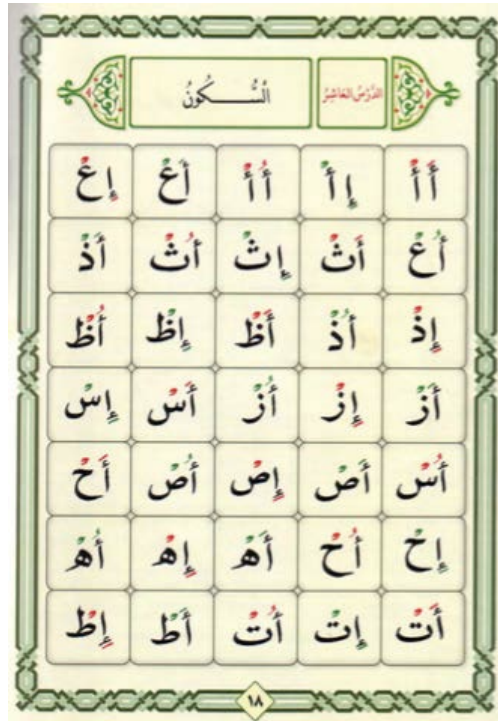 الدَّرْسُ الْعَاشِرُ
السُّـــكُونُ
أَأْ إِأْ أُأْ أَعْ إِعْ
أُعْ أَثْ إِثْ أُثْ أَذْ
إِذْ أُذْ أَظْ إِظْ أُظْ
أَزْ إِزْ أُزْ أَسْ إِسْ
أُسْ أَصْ إِصْ أُصْ أَحْ
إِحْ أُحْ أَهْ إِهْ أُهْ
أَتْ إِتْ أُتْ أَطْ إِطْ
١٨